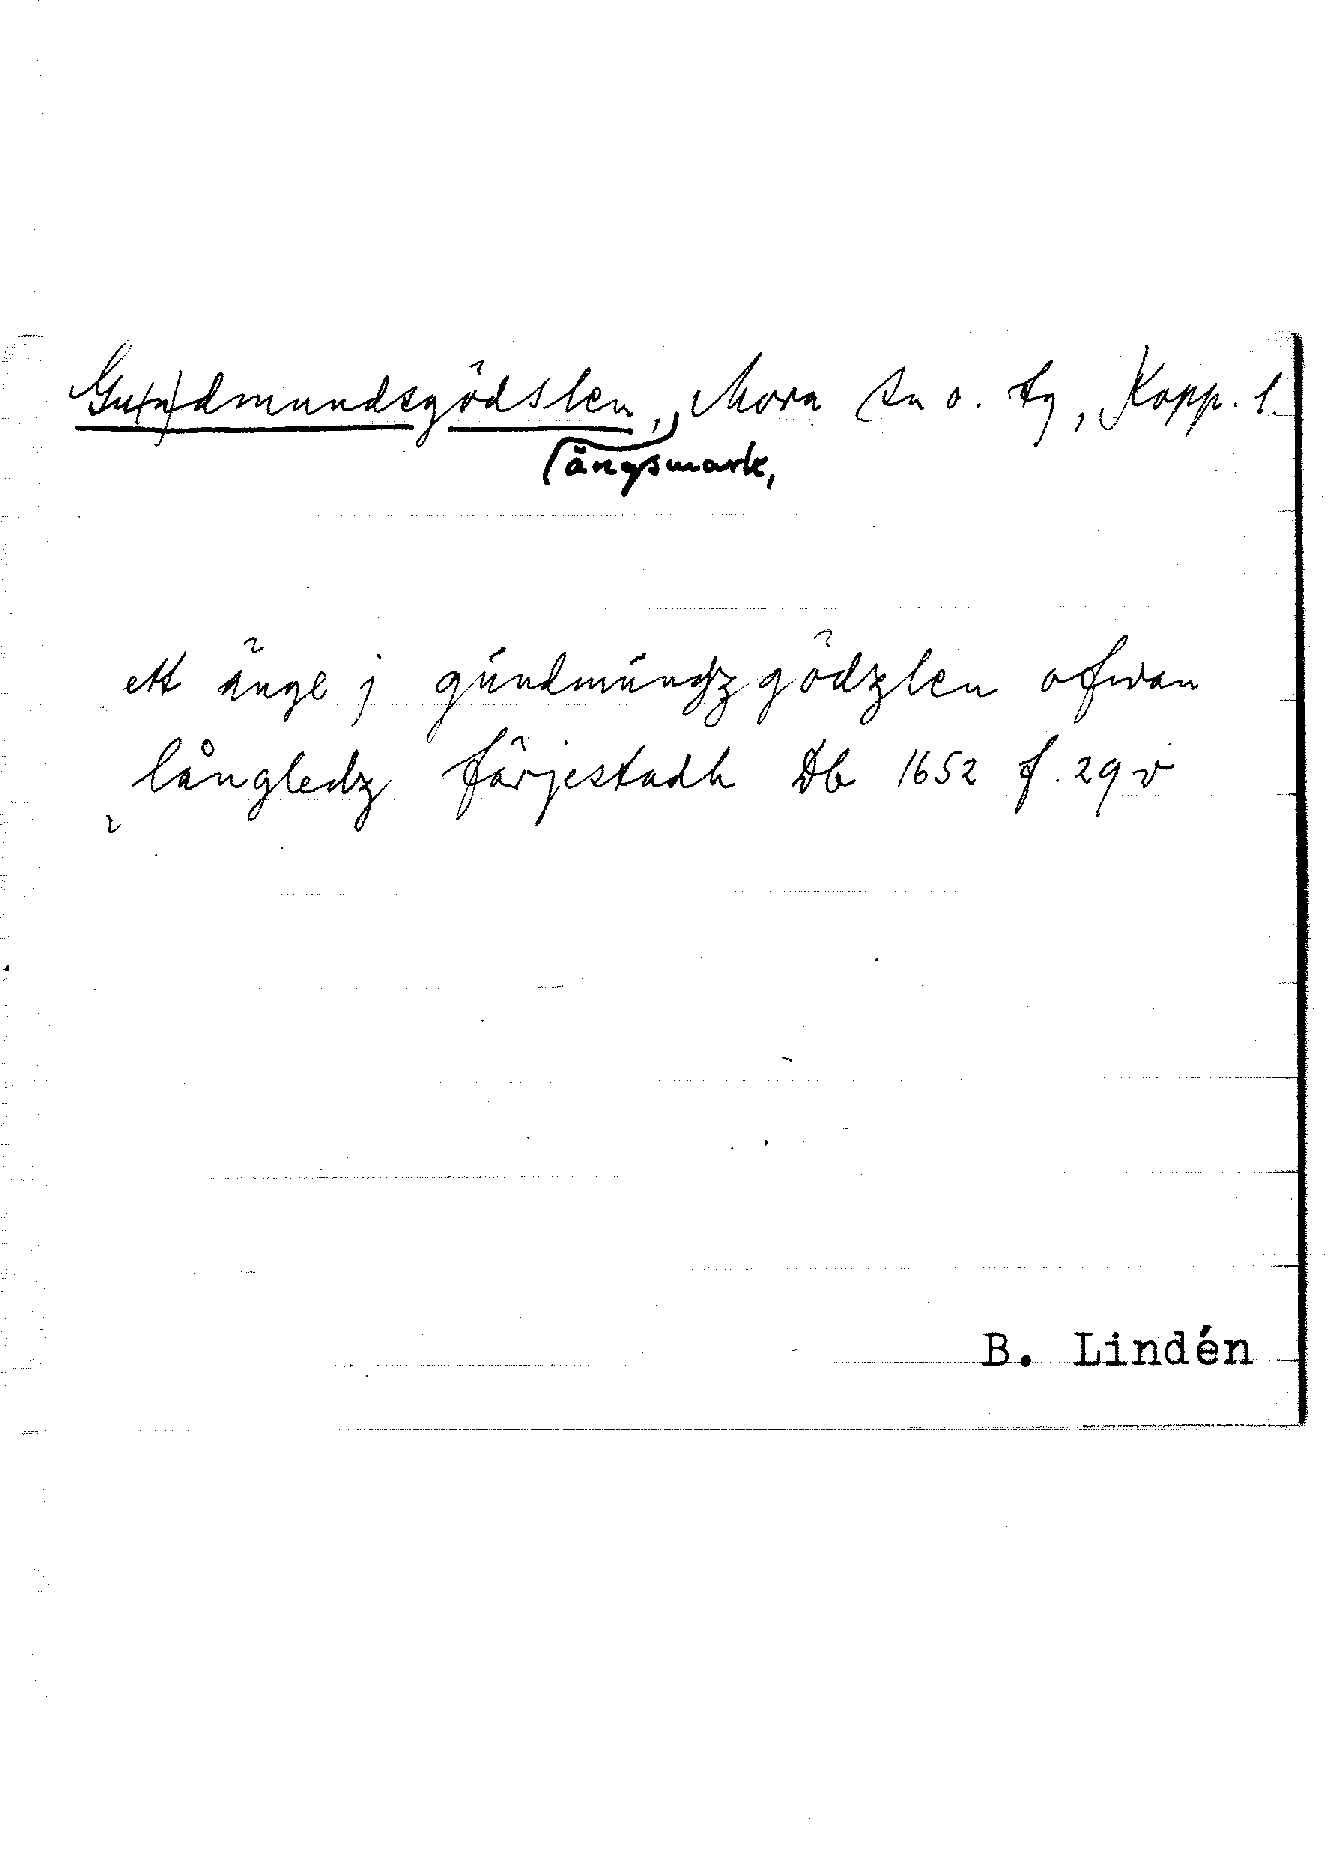 Gu(n)dmundsgödslen, Mora sn o. tg, Kopp. l.
ängsmark,
ett änge j gúndmúndzgödzlen ofwan
långledz färjestadh Db 1652 f. 29 v
B. Lindén